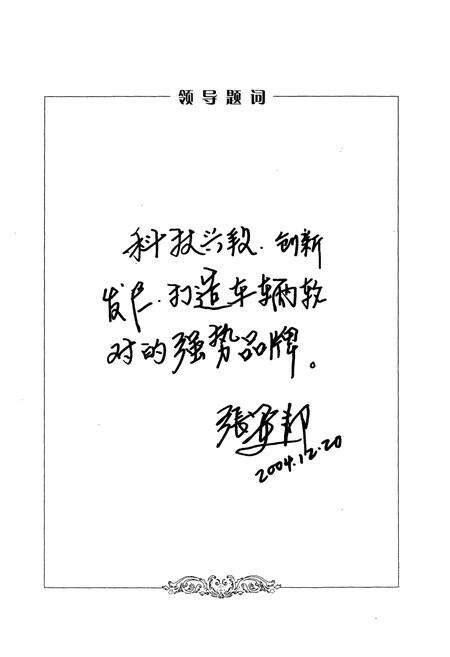 领导题词
科技兴段.创新
发展.打造车辆软
对的强势品牌。
張
2004.12.20